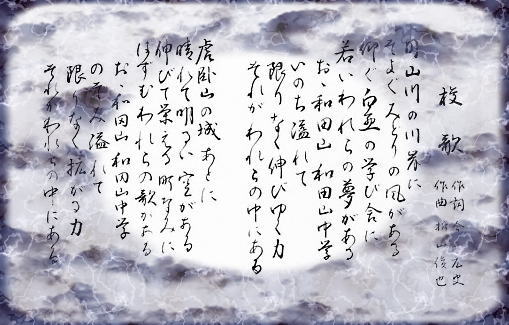 校歌
作詞
作曲 也
円山川の川岸に
そよぐみどりの風がある
仰ぐ白亜の学び舎に
若いわれらの夢がある
おゝ和田山 和田山中学
いのち溢れて
限りなく伸びゆく力
それがわれらの中にある
虎臥山の城あとに
晴れて明るい空がある
伸びて栄える町なみに
はずむわれらの歌がある
おゝ和田山 和田山中学
のぞみ溢れて
限りなく拡がる力
それがわれらの中にある